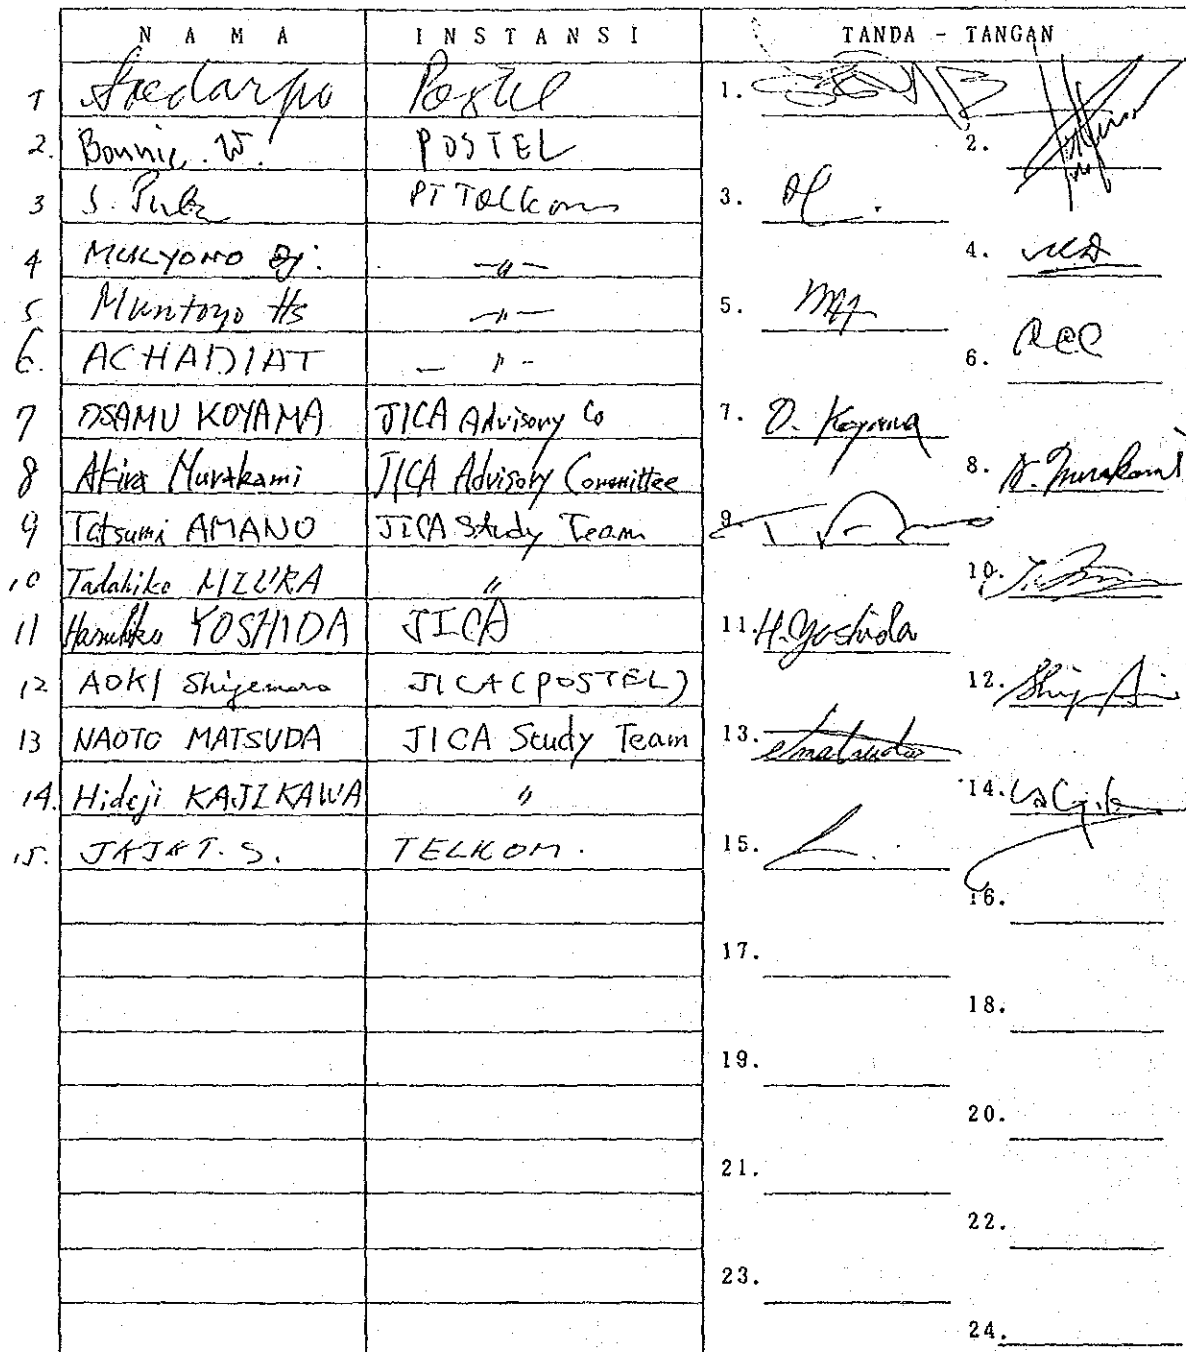 N A M A I N S T A N S I TANDA - TANGAN
1 Soedarpo Postel 1.
2. Bonnie. W. POSTEL 2.
3 S. PT Telkom 3.
4 MULYONO Dj. -〃- 4.
5 Muntoyo Hs -〃- 5.
6. ACHADIAT - 〃 - 6.
7 OSAMU KOYAMA JICA Advisory Co 7. O. Koyama
8 Akira Murakami JICA Advisory Committee 8. A. Murakami
9 Tatsumi AMANO JICA Study Team 9.
10 Tadahiko MIURA 〃 10.
11 Haruhiko YOSHIDA JICA 11. H. Yoshida
12 AOKI Shigemaro JICA (POSTEL) 12.
13 NAOTO MATSUDA JICA Study Team 13.
14. Hideji KAJIKAWA 〃 14.
15. T. S. TELKOM. 15.
16.
17.
18.
19.
20.
21.
22.
23.
24.